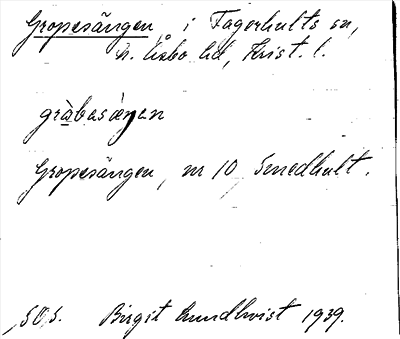 Gropesängen i Fagerhults sn,
n. Åsbo hd, Krist. l.
gràbasàŋen
Gropesängen, nr 10 Smedhult.
SOS. Birgit Lundkvist 1939.